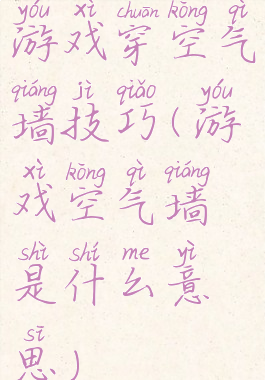 yóu xì chuān kōng qì
游戏穿空气
qiáng jì qiǎo yóu
墙技巧(游
xì kōng qì qiáng
戏空气墙
shì shí me yì
是什么意
sī
思)